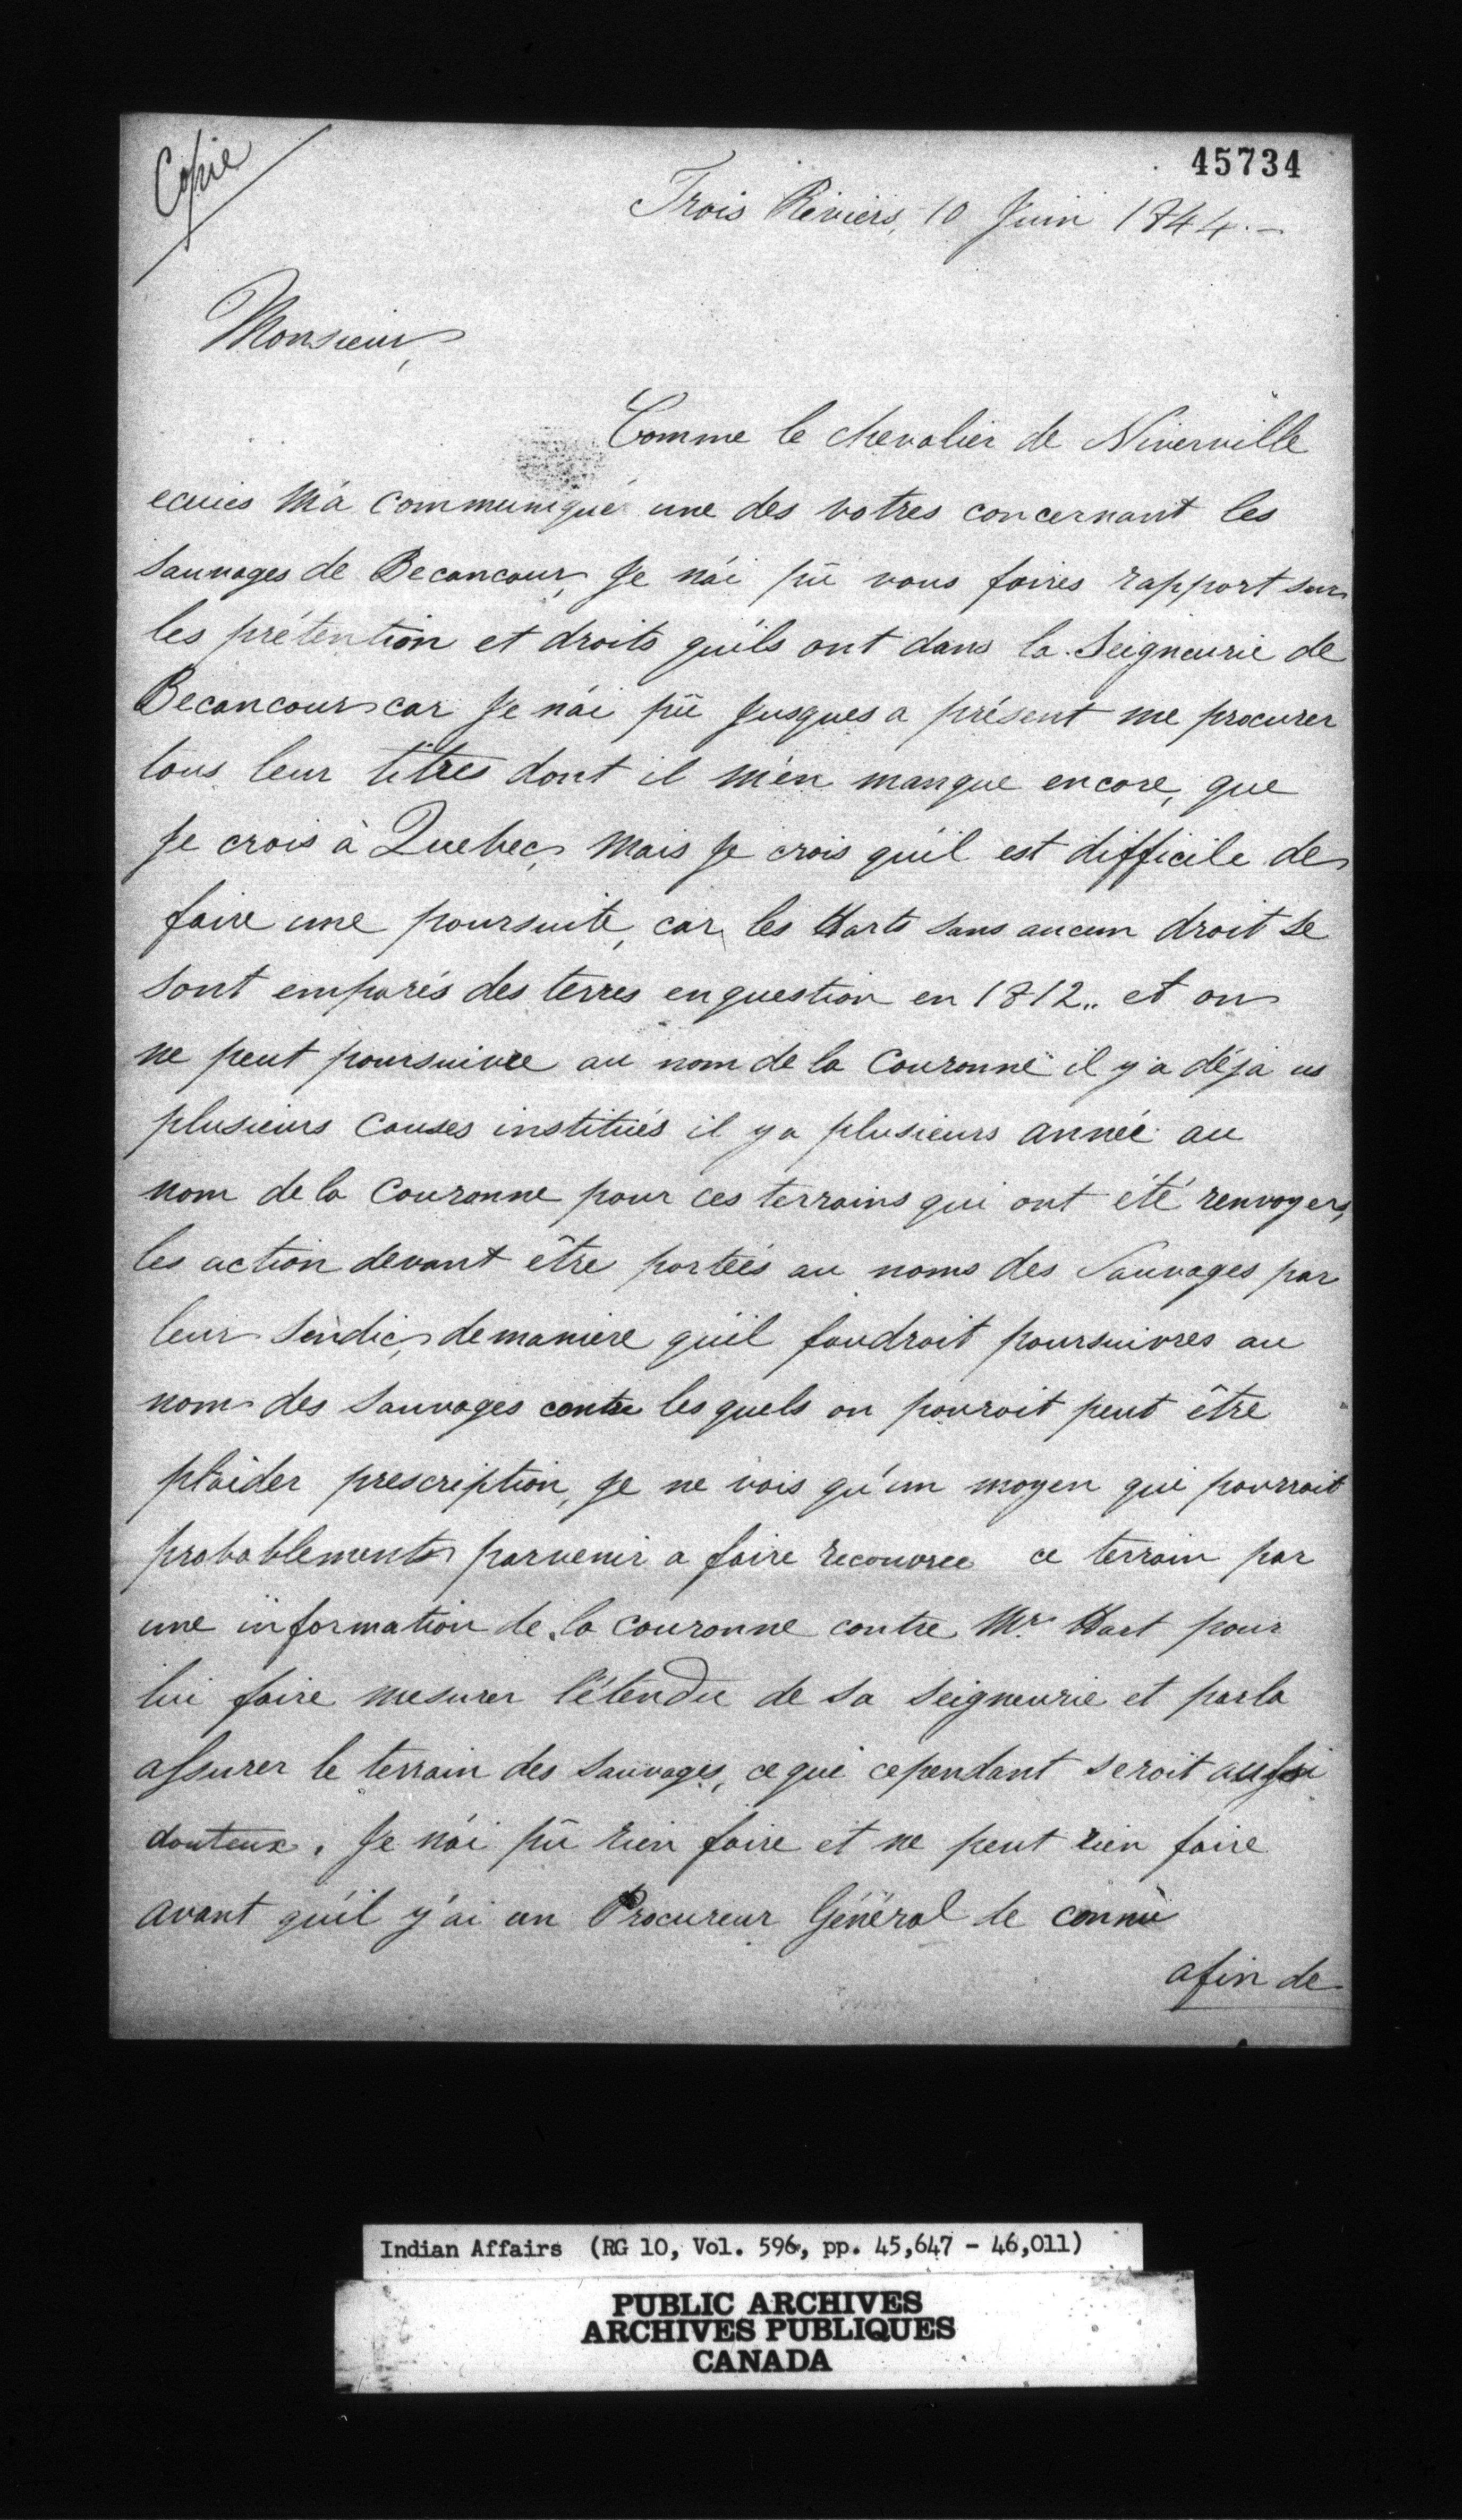 Copie
45734
Trois Riviers, 10 Juin 1844.-
Monsieur,
Comme le chevalier de Niverville
ecuies M'a communiqué une des votres concernant les
Sauvages de Becancour, Je n'ai pü vous faires rapport sur
les prétention et droits qu'ils ont dans la Seigneurie de
Becancour car Je n'ai pü Jusques a présent me procurer
tous leur titres dont il m'en manque encore, que
Je crois à Quebec, mais Je crois qu'il est difficile de
faire une poursuite, car les Harts sans aucun droit se
sont emparés des terres en question en 1812.. et on
ne peut poursuivre au nom de la Couronne il y a déja us
plusieurs Causes institués il y a plusieurs année au
nom de la Couronne pour ces terrains qui ont été renvoyers,
les action devant être portées au noms des Sauvages par
leur Sendic, de maniere qu'il faudroit poursuivres au
nom des Sauvages contre les quels on pouroit peut être
plaider prescription, Je ne vois qu'un moyen qui pourroit
probablements parvenir a faire recouvree ce terrain par
une information de la couronne contre Mr. Hart pour
lui faire mesurer l'étendu de sa seigneurie et parla
assurer le terrain des Sauvages, ce qui cependant seroit aussi
douteux. Je n'ai pü rien faire et ne peut rien faire
avant qu'il y'ai un Procureur Général de connu
afin de
Indian Affairs (RG 10, Vol. 596, pp. 45,647 - 46,011)
PUBLIC ARCHIVES
ARCHIVES PUBLIQUES
CANADA